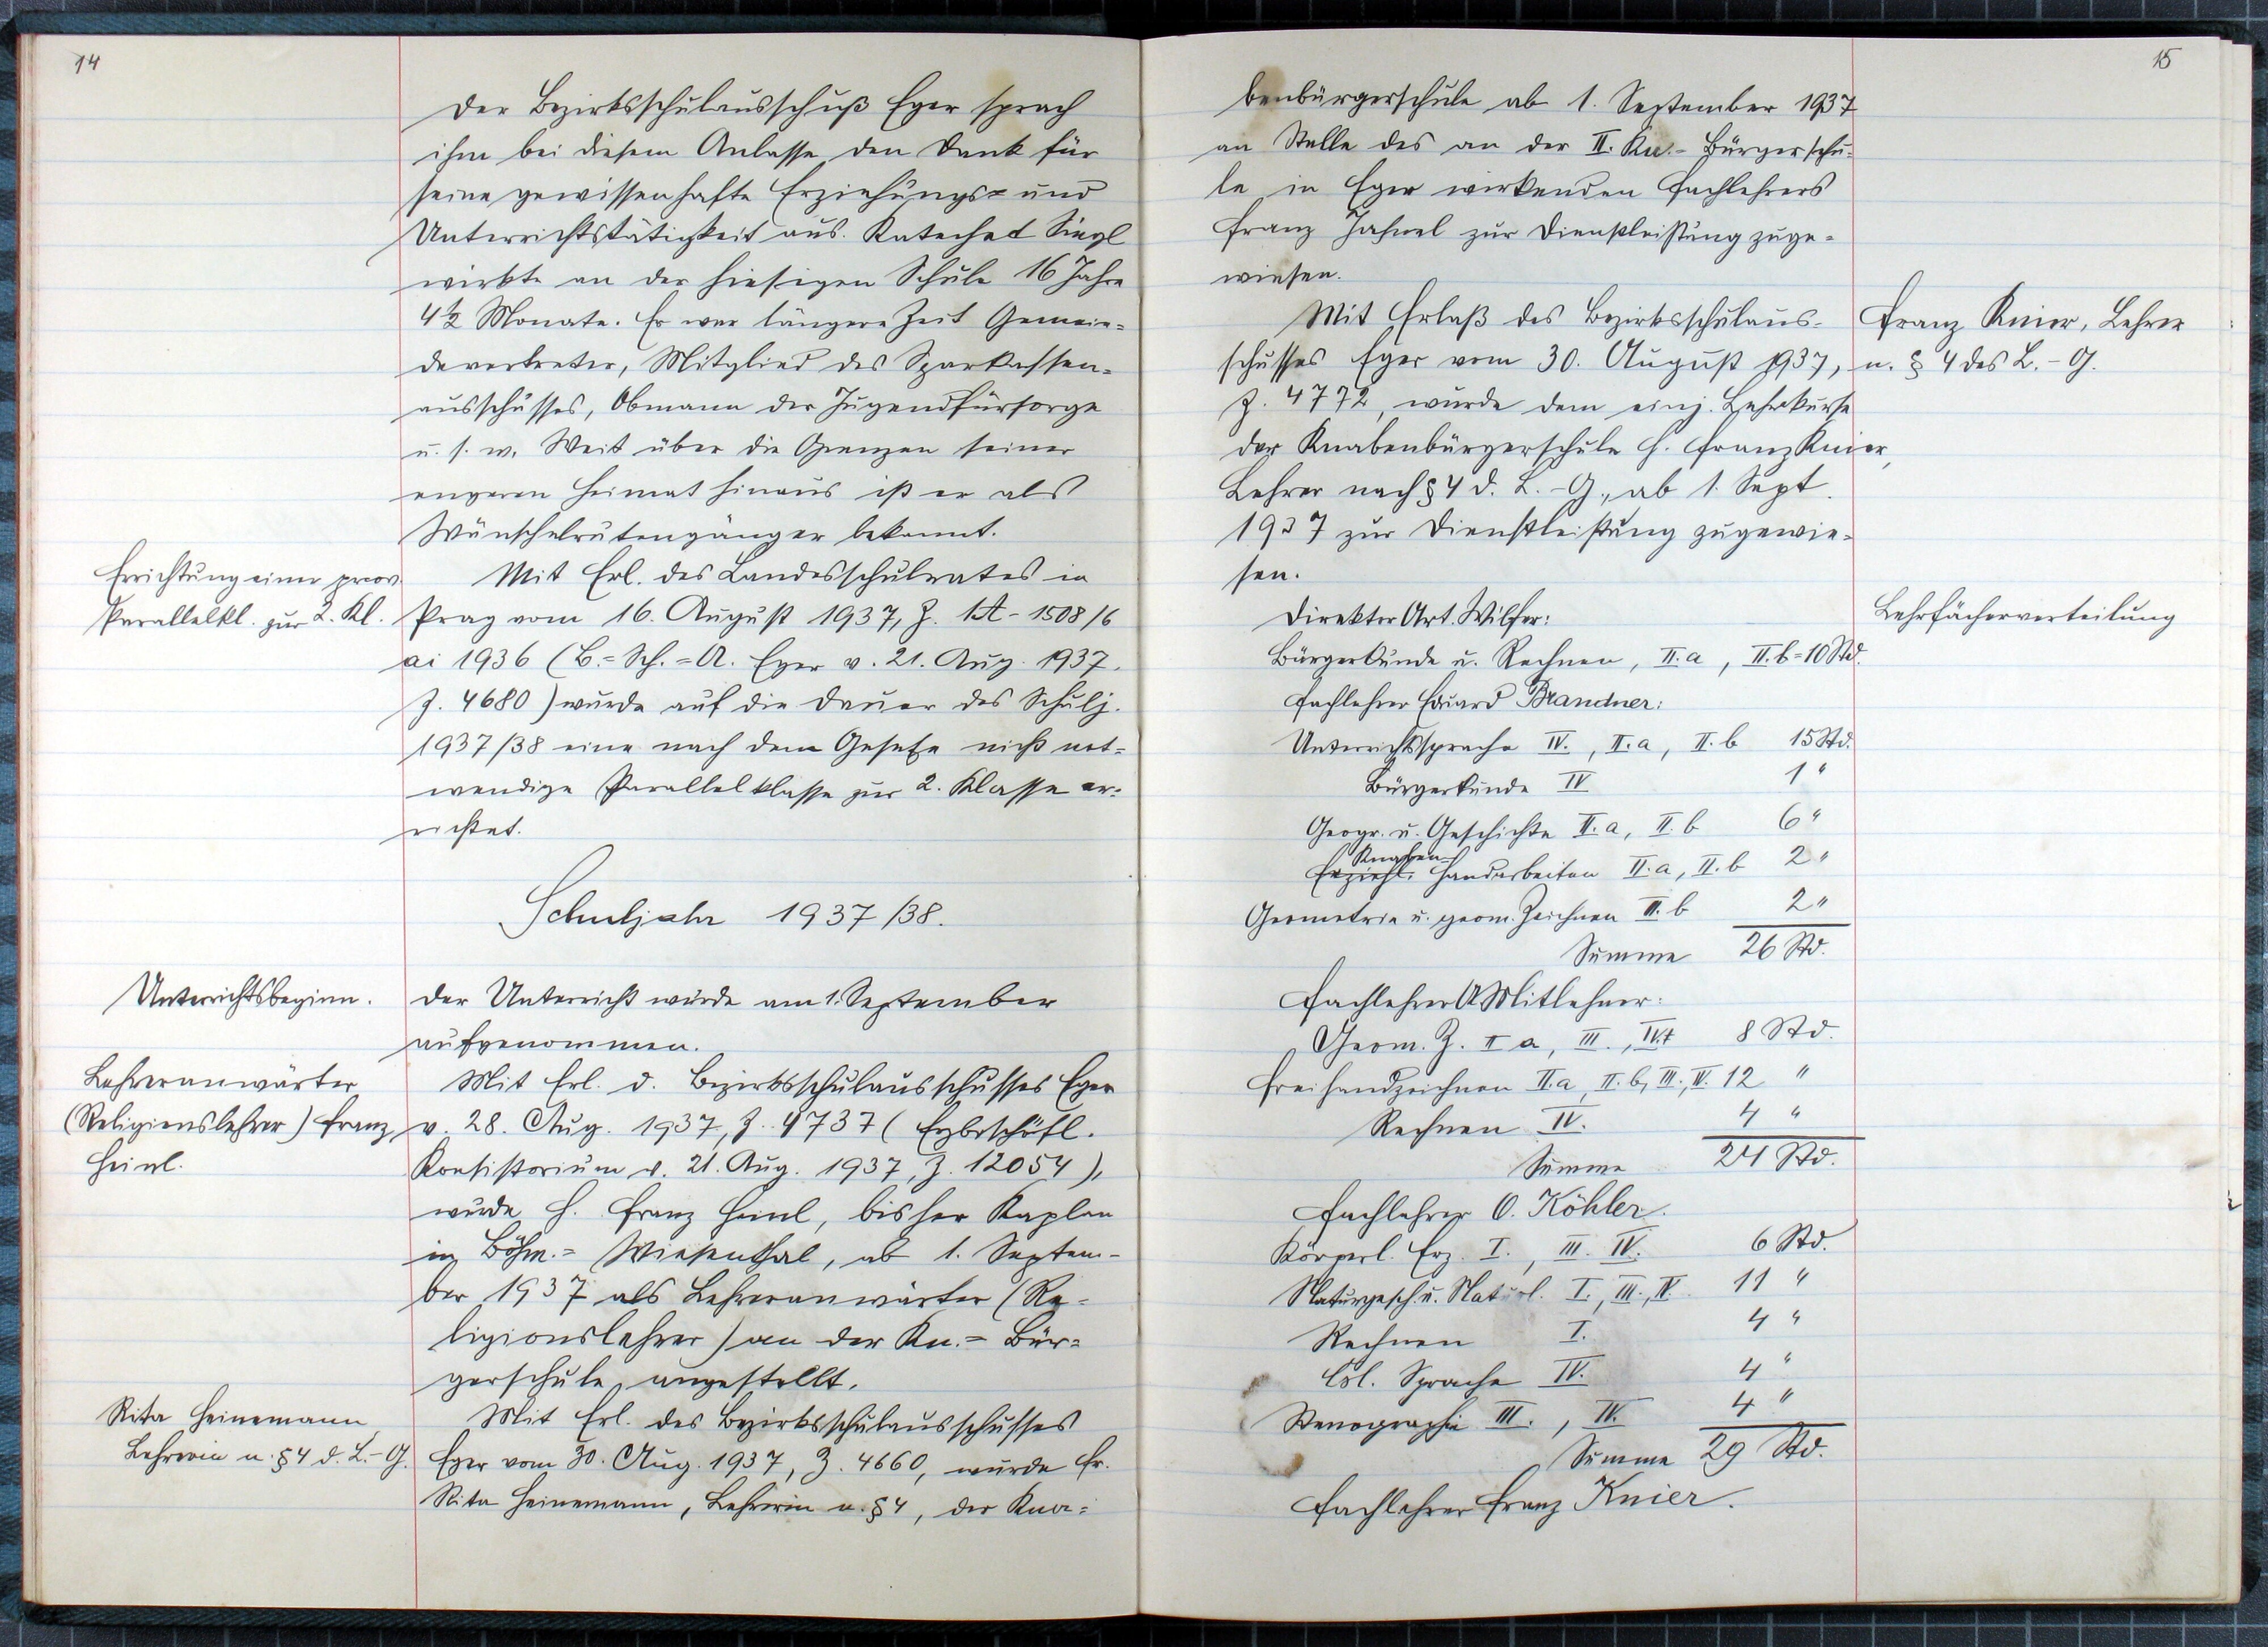 14
Der Bezirksschulausschuß Eger sprach
ihm bei diesem Anlasse den Dank für
seine gewissenhafte Erziehungs- und
Unterrichtstätigkeit aus. Katechet Siegl
wirkte an der hiesigen Schule 16 Jahre
4½ Monate. Er war längere Zeit Gemein-
devertreter, Mitglied des Sparkassen-
ausschusses, Obmann der Jugendfürsorge
u. s. w. Weit über die Grenzen seiner
engeren Heimat hinaus ist er als
Wünschelrutengänger bekannt.
Errichtung einer prov.
Parallelkl. zur 2. Kl.
Mit Erl. des Landesschulrates in
Prag vom 16. August 1937, Z. 1A-1508/6
ai 1936 (B.-Sch.-A. Eger v. 21. Aug. 1937.
Z. 4680) wurde auf die Dauer des Schulj.
1937/38 eine nach dem Gesetze nicht not-
wendige Parallelklasse zur 2. Klasse er-
richtet.
Schuljahr 1937/38.
Unterrichtsbeginn.
Der Unterricht wurde am 1. September
aufgenommen.
Lehreranwärter
(Religionslehrer) Franz
Heinl.
Mit Erl. d. Bezirksschulausschusses Eger
v. 28. Aug. 1937, Z. 4737 (Erzbischöfl.
Konsistorium v. 21. Aug. 1937, Z. 12054),
wurde H. Franz Heinl, bisher Kaplan
in Böhm.-Wiesenthal, ab 1. Septem-
ber 1937 als Lehreranwärter (Re-
ligionslehrer) an der Kn.-Bür-
gerschule angestellt.
Rita Heinemann
Lehrerin n. § 4 d. L.-G.
Mit Erl. des Bezirksschulausschusses
Eger vom 30. Aug. 1937, Z. 4660, wurde Fr.
Rita Heinemann, Lehrerin n. § 4, der Kna-
15
benbürgerschule ab 1. September 1937
an Stelle des an der II. Kn.-Bürgerschu-
le in Eger wirkenden Fachlehrers
Franz Jahnel zur Dienstleistung zuge-
wiesen.
Mit Erlaß des Bezirksschulaus-
schusses Eger vom 30. August 1937,
Z. 4772, wurde dem einj. Lehrkurse
der Knabenbürgerschule H. Franz Knier,
Lehrer nach § 4 d. L.-G., ab 1. Sept.
1937 zur Dienstleistung zugewie-
sen.
Franz Knier, Lehrer
n. § 4 des L.-G.
Lehrfächerverteilung
Direktor Art. Wilfer:
Bürgerkunde u. Rechnen, II.a, II.b = 10 Std.
Fachlehrer Eduard Brandner:
Unterrichtssprache IV., II.a, II.b 15 Std.
Bürgerkunde IV 1 "
Geogr. u. Geschichte II.a, II.b 6 "
Knaben-
Erziehl. Handarbeiten II.a, II.b 2 "
Geometrie u. geom. Zeichnen II.b 2 "
Summe 26 Std.
Fachlehrer A. Mitlehner:
Geom. Z. II a, III., IV. 8 Std.
Freihandzeichnen II.a, II.b, III., IV. 12 "
Rechnen IV. 4 "
Summe 24 Std.
Fachlehrer O. Köhler.
Körperl. Erz. I., III. IV. 6 Std.
Naturgesch. u. Naturl. I., III., IV. 11 "
Rechnen I. 4 "
čsl. Sprache IV. 4 "
Stenographie III., IV. 4 "
Summe 29 Std.
Fachlehrer Franz Knier.